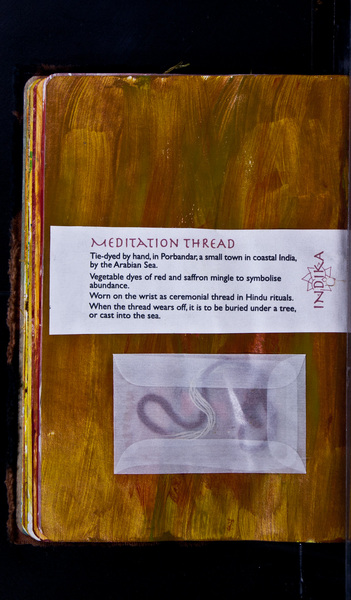 MEDITATION THREAD
Tie-dyed by hand, in Porbandar, a small town in coastal India,
by the Arabian Sea.
Vegetable dyes of red and saffron mingle to symbolise
abundance.
Worn on the wrist as ceremonial thread in Hindu rituals.
When the thread wears off, it is to be buried under a tree,
or cast into the sea.
INDIKA